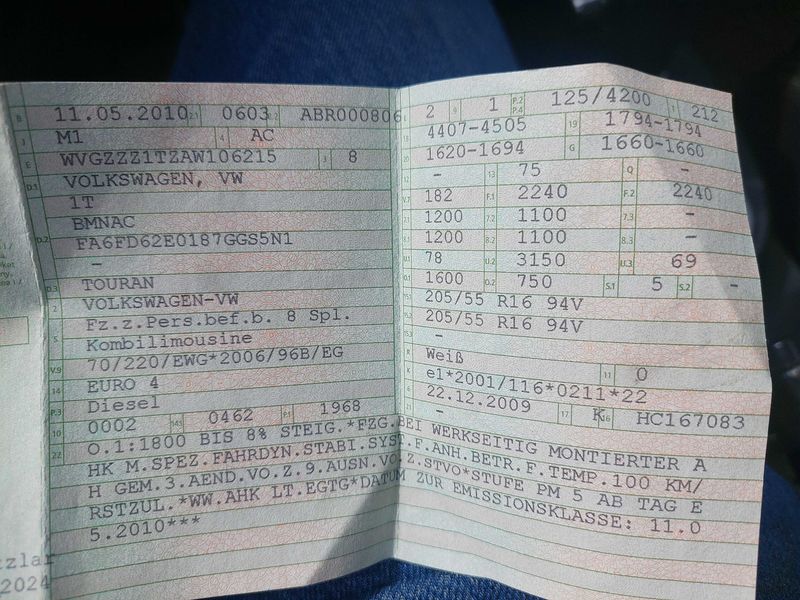 B 11.05.2010 2.1 0603 2.2 ABR000806
J M1 4 AC
E WVGZZZ1TZAW106215 3 8
D.1 VOLKSWAGEN, VW
1T
D.2 BMNAC
FA6FD62E0187GGS5N1
–
D.3 TOURAN
2 VOLKSWAGEN-VW
5 Fz.z.Pers.bef.b. 8 Spl.
Kombilimousine
V.9 70/220/EWG*2006/96B/EG
14 EURO 4
P.3 Diesel
10 0002 14.1 0462 P.1 1968
L 2 9 1 P.2 P.4 125/4200 T 212
18 4407-4505 19 1794-1794
20 1620-1694 G 1660-1660
12 – 13 75 Q –
V.7 182 F.1 2240 F.2 2240
7.1 1200 7.2 1100 7.3 –
8.1 1200 8.2 1100 8.3 –
U.1 78 U.2 3150 U.3 69
O.1 1600 O.2 750 S.1 5 S.2 –
15.1 205/55 R16 94V
15.2 205/55 R16 94V
15.3 –
R Weiß 11 0
K e1*2001/116*0211*22
6 22.12.2009 17 K 16 HC167083
21 –
22 O.1:1800 BIS 8% STEIG.*FZG.BEI WERKSEITIG MONTIERTER A
HK M.SPEZ.FAHRDYN.STABI.SYST.F.ANH.BETR.F.TEMP.100 KM/
H GEM.3.AEND.VO.Z.9.AUSN.VO.Z.STVO*STUFE PM 5 AB TAG E
RSTZUL.*WW.AHK LT.EGTG*DATUM ZUR EMISSIONSKLASSE: 11.0
5.2010***
2024